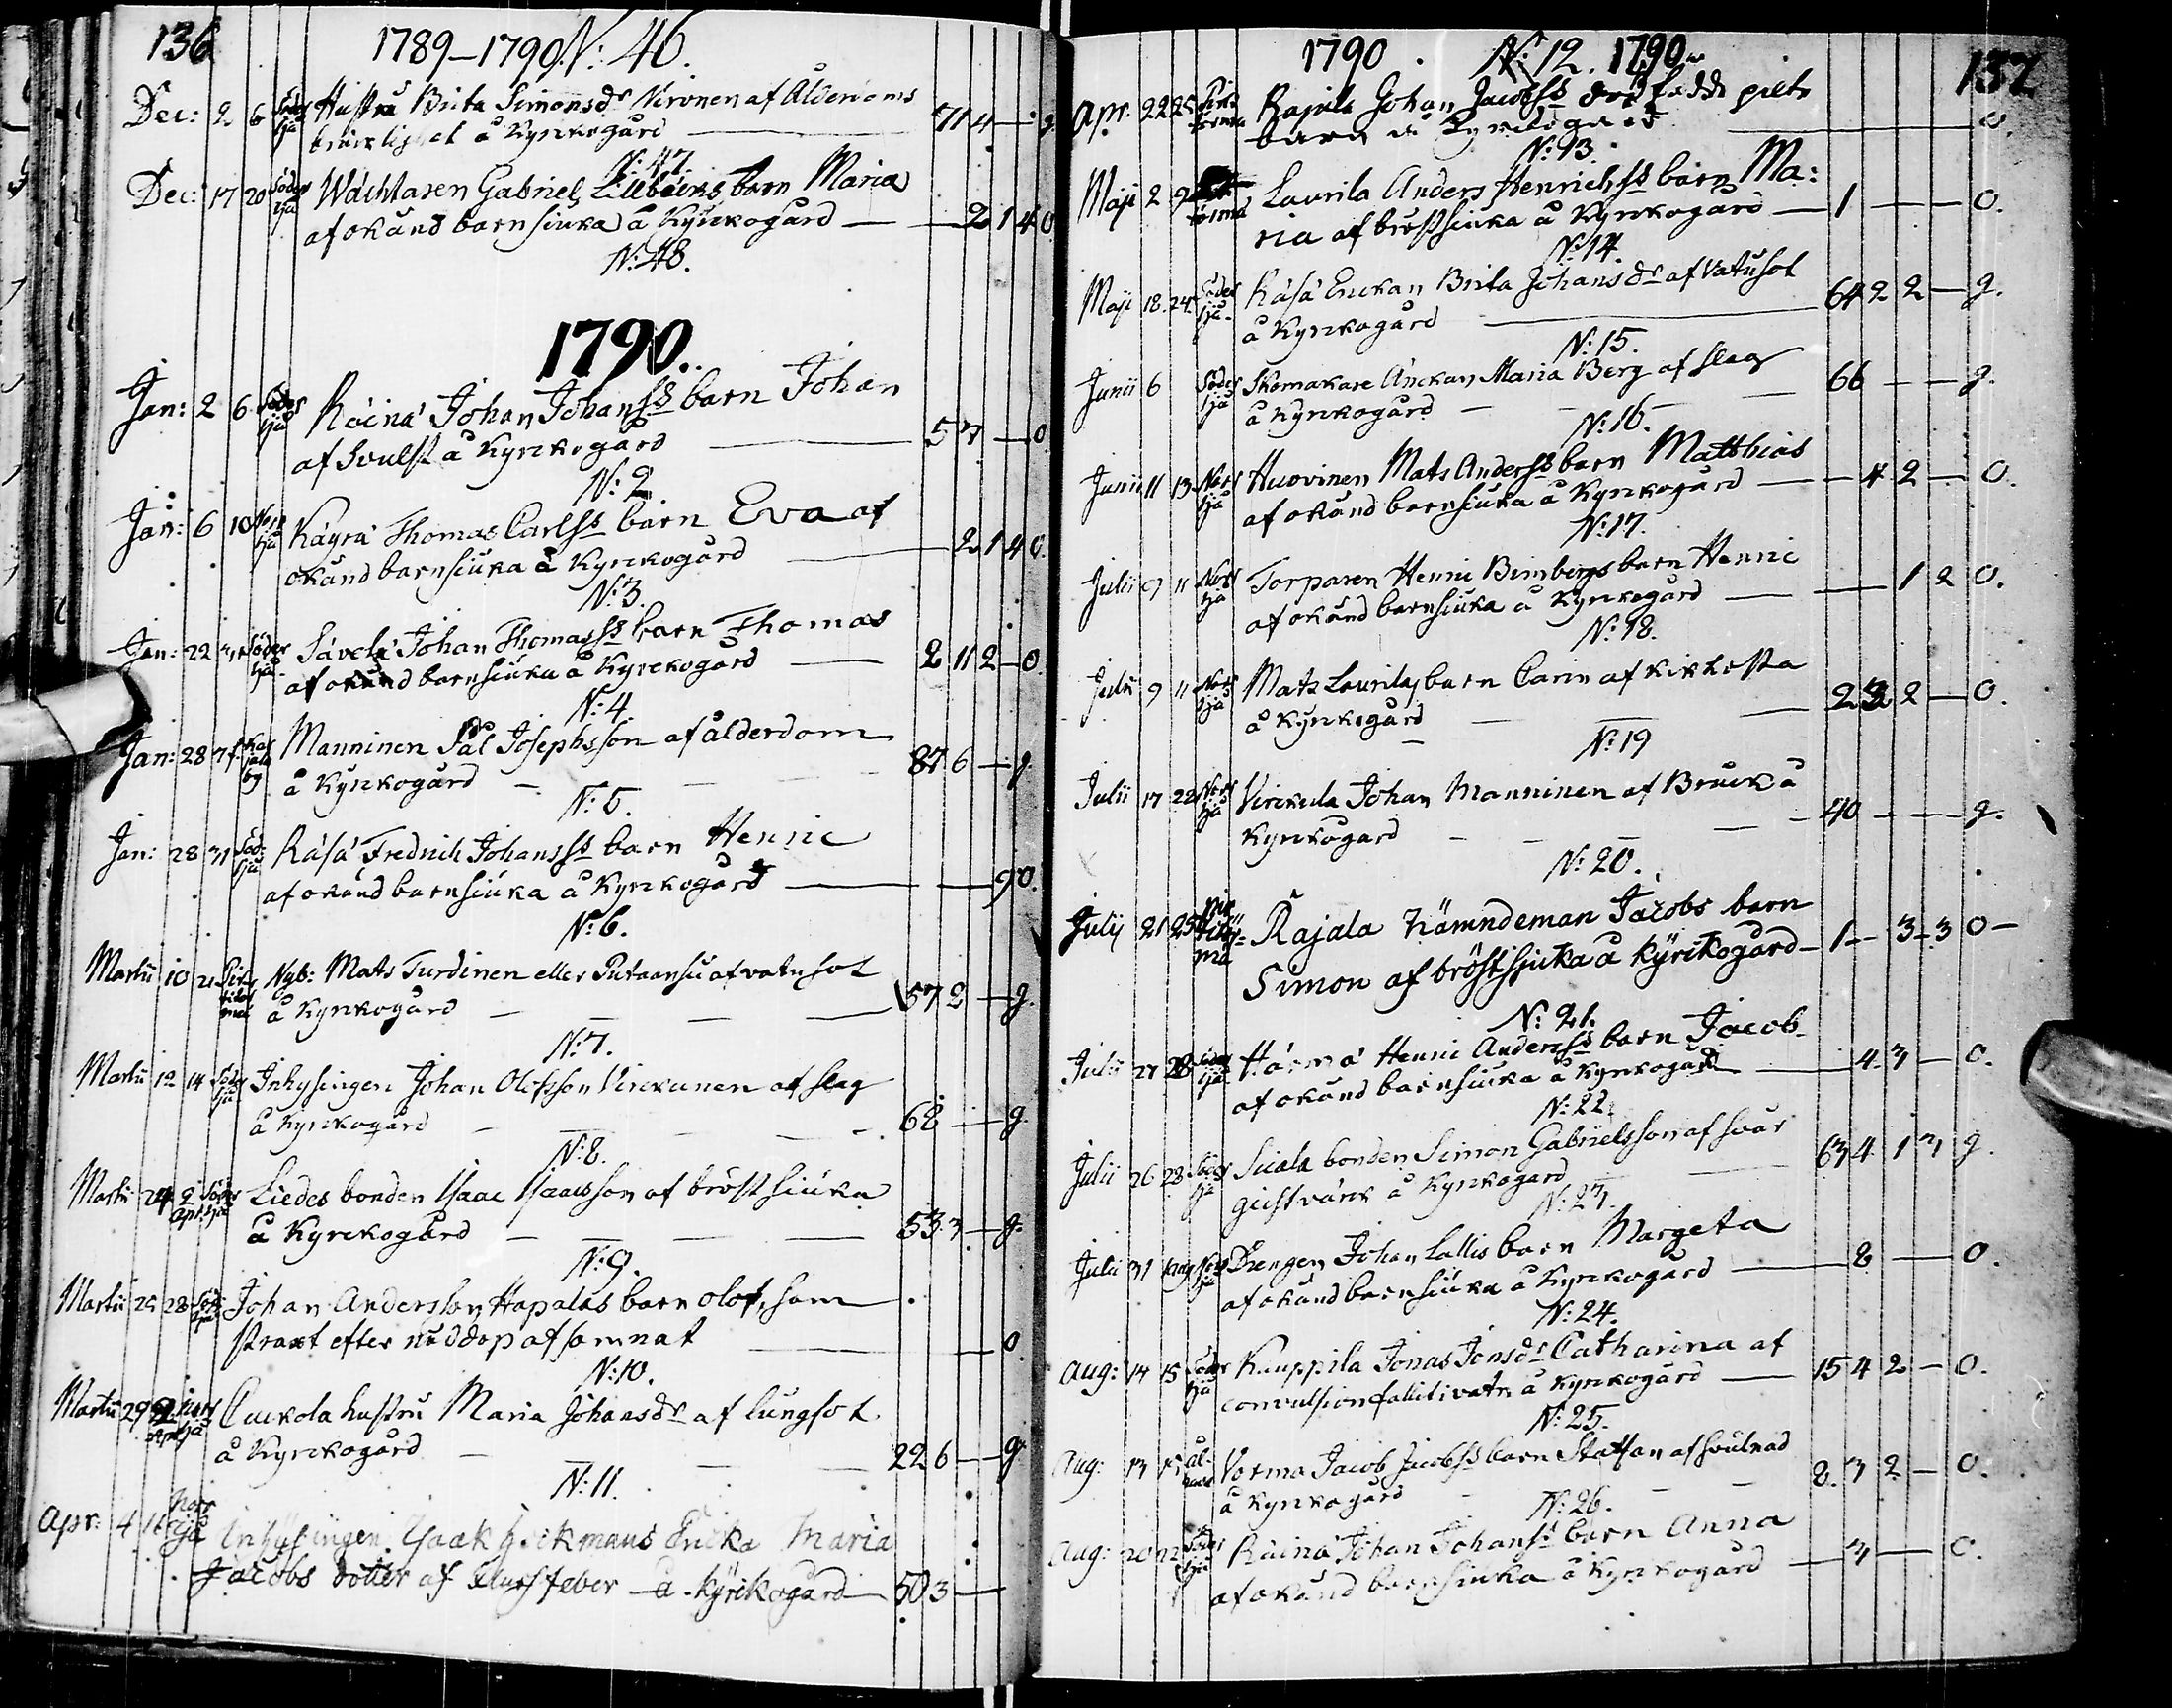 136 1789–1790 N: 46.
Dec: 2 6 Söder sjä Hustru Brita Simonsdr Nironen af Ålderdoms
bräcklighet å Kyrkogård — 71 4 — g.
N: 47.
Dec: 17 20 Söder sjä Wächtaren Gabriel Lillbäcks barn Maria
af okänd barnsiuka å Kyrckogård — 2 1 4 0
N: 48.
1790.
Jan: 2 6 Söder sjä Räinä Johan Johanss barn Johan
af Svulst å Kyrckogård — 5 7 — 0
N: 2.
Jan: 6 10 Norr sjä Käyrä Thomas Carlss barn Eva af
okänd barnsiuka å Kyrckogård — 2 1 4 0
N: 3.
Jan: 22 Söder sjä Sävelä Johan Thomass barn Thomas
af okänd barnsiuka å Kyrckogård — 2 11 2 — 0
N: 4.
Jan: 28 7 f. Manninen Pål Josephsson af ålderdom
å Kyrckogård — 87 6 — g
N: 5.
Jan: 28 31 Söd: sjä Räsä Fredrich Johanss barn Henric
af okänd barnsiuka å Kyrckogård — 9 0.
N: 6.
Martii 10 21 Nyb: Mats Turdinen eller Putaansu af vatusot
å Kyrckogård — 57 2 — g.
N: 7.
Martii 12 14 Söder sjä Inhysingen Johan Olofsson Virckunen af slag
å Kyrckogård — 62 — g.
N: 8.
Martii 24 2 Apr. Söder sjä Liedes bonden Isaac Isaacsson af bröstsiuka
å Kyrckogård — 53 3 — g.
N: 9.
Martii 25 28 Söder sjä Johan Andersson Hapalas barn Olof, som
straxt efter nöddop afsomnat — 0
N: 10.
Martii 29 2 Apr. sjä Cuckola hustru Maria Johansdr af lungsot
å Kyrckogård — 22 6 — g
N: 11.
Apr: 4 Norr sjä Inhysingen Isaak Hickmans Encka Maria
Jacobs dotter af feber å kyrikogård 50 3 —
1790. N: 12. 1790. 137
Apr: 22 25 Rajala Johan Jacobss dödfödde pilt
barn å Kyrckogård — 0.
N: 13.
Maji 2 9 Laurila Anders Henrichss barn Ma:
ria af bröstsiuka å Kyrckogård — 1 — 0.
N: 14.
Maji 18. 24. Söder sjä. Räsä Enckan Brita Johansdr af Vatusot
å Kyrckogård — 64 2 2 — g.
N: 15.
Junii 6 Söder sjä Skomakare Änckan Maria Berg af slag
å Kyrckogård — 66 — g.
N: 16.
Junii 11 13 Norr sjä Huovinen Mats Anderss barn Matthias
af okänd barnsiuka å Kyrckogård — 4 2 — 0.
N: 17.
Julii 9 11 Norr sjä Torparen Henric Bimbergs barn Henric
af okänd barnsiuka å Kyrckogård — 1 2 0.
N: 18.
Julii 9 11 Norr sjä Mats Laurilas barn Carin af kikhosta
å Kyrckogård — 2 3 2 — 0.
N: 19
Julii 17 22 Norr sjä Virckula Johan Manninen af Bråck å
Kyrckogård — 40 — g.
N: 20.
Julij 21 25 Rajala Nämndeman Jacobs barn
Simon af bröstsjuka å kyrckogård — 1 — 3 – 3 0 —
N: 21.
Julii 27 28 Söder sjä Härmä Henric Anderss barn Jacob
af okänd barnsiuka å Kyrckogård — 4 3 — 0.
N: 22.
Julii 26 28 Söder sjä Sicala bonden Simon Gabrielsson af svår
gicktvärk å Kyrckogård — 63 4 1 3 g.
N: 23.
Julii 31 1 Aug Norr sjä Drengen Johan Lallis barn Margeta
af okänd barnsiuka å Kyrckogård — 2 — 0.
N: 24.
Aug: 14 15 Söder sjä Kauppila Jonas Jonsdr Catharina af
convulsion å Kyrckogård — 15 4 2 — 0.
N: 25.
Aug: 13 15 Vorma Jacob Jacobss barn Staffan af svulnad
å Kyrckogård — 2. 3 2 — 0.
N: 26.
Aug: 20 22 Söder sjä Räinä Johan Johanss barn Anna
af okänd barnsiuka å Kyrckogård — 3 — 0.